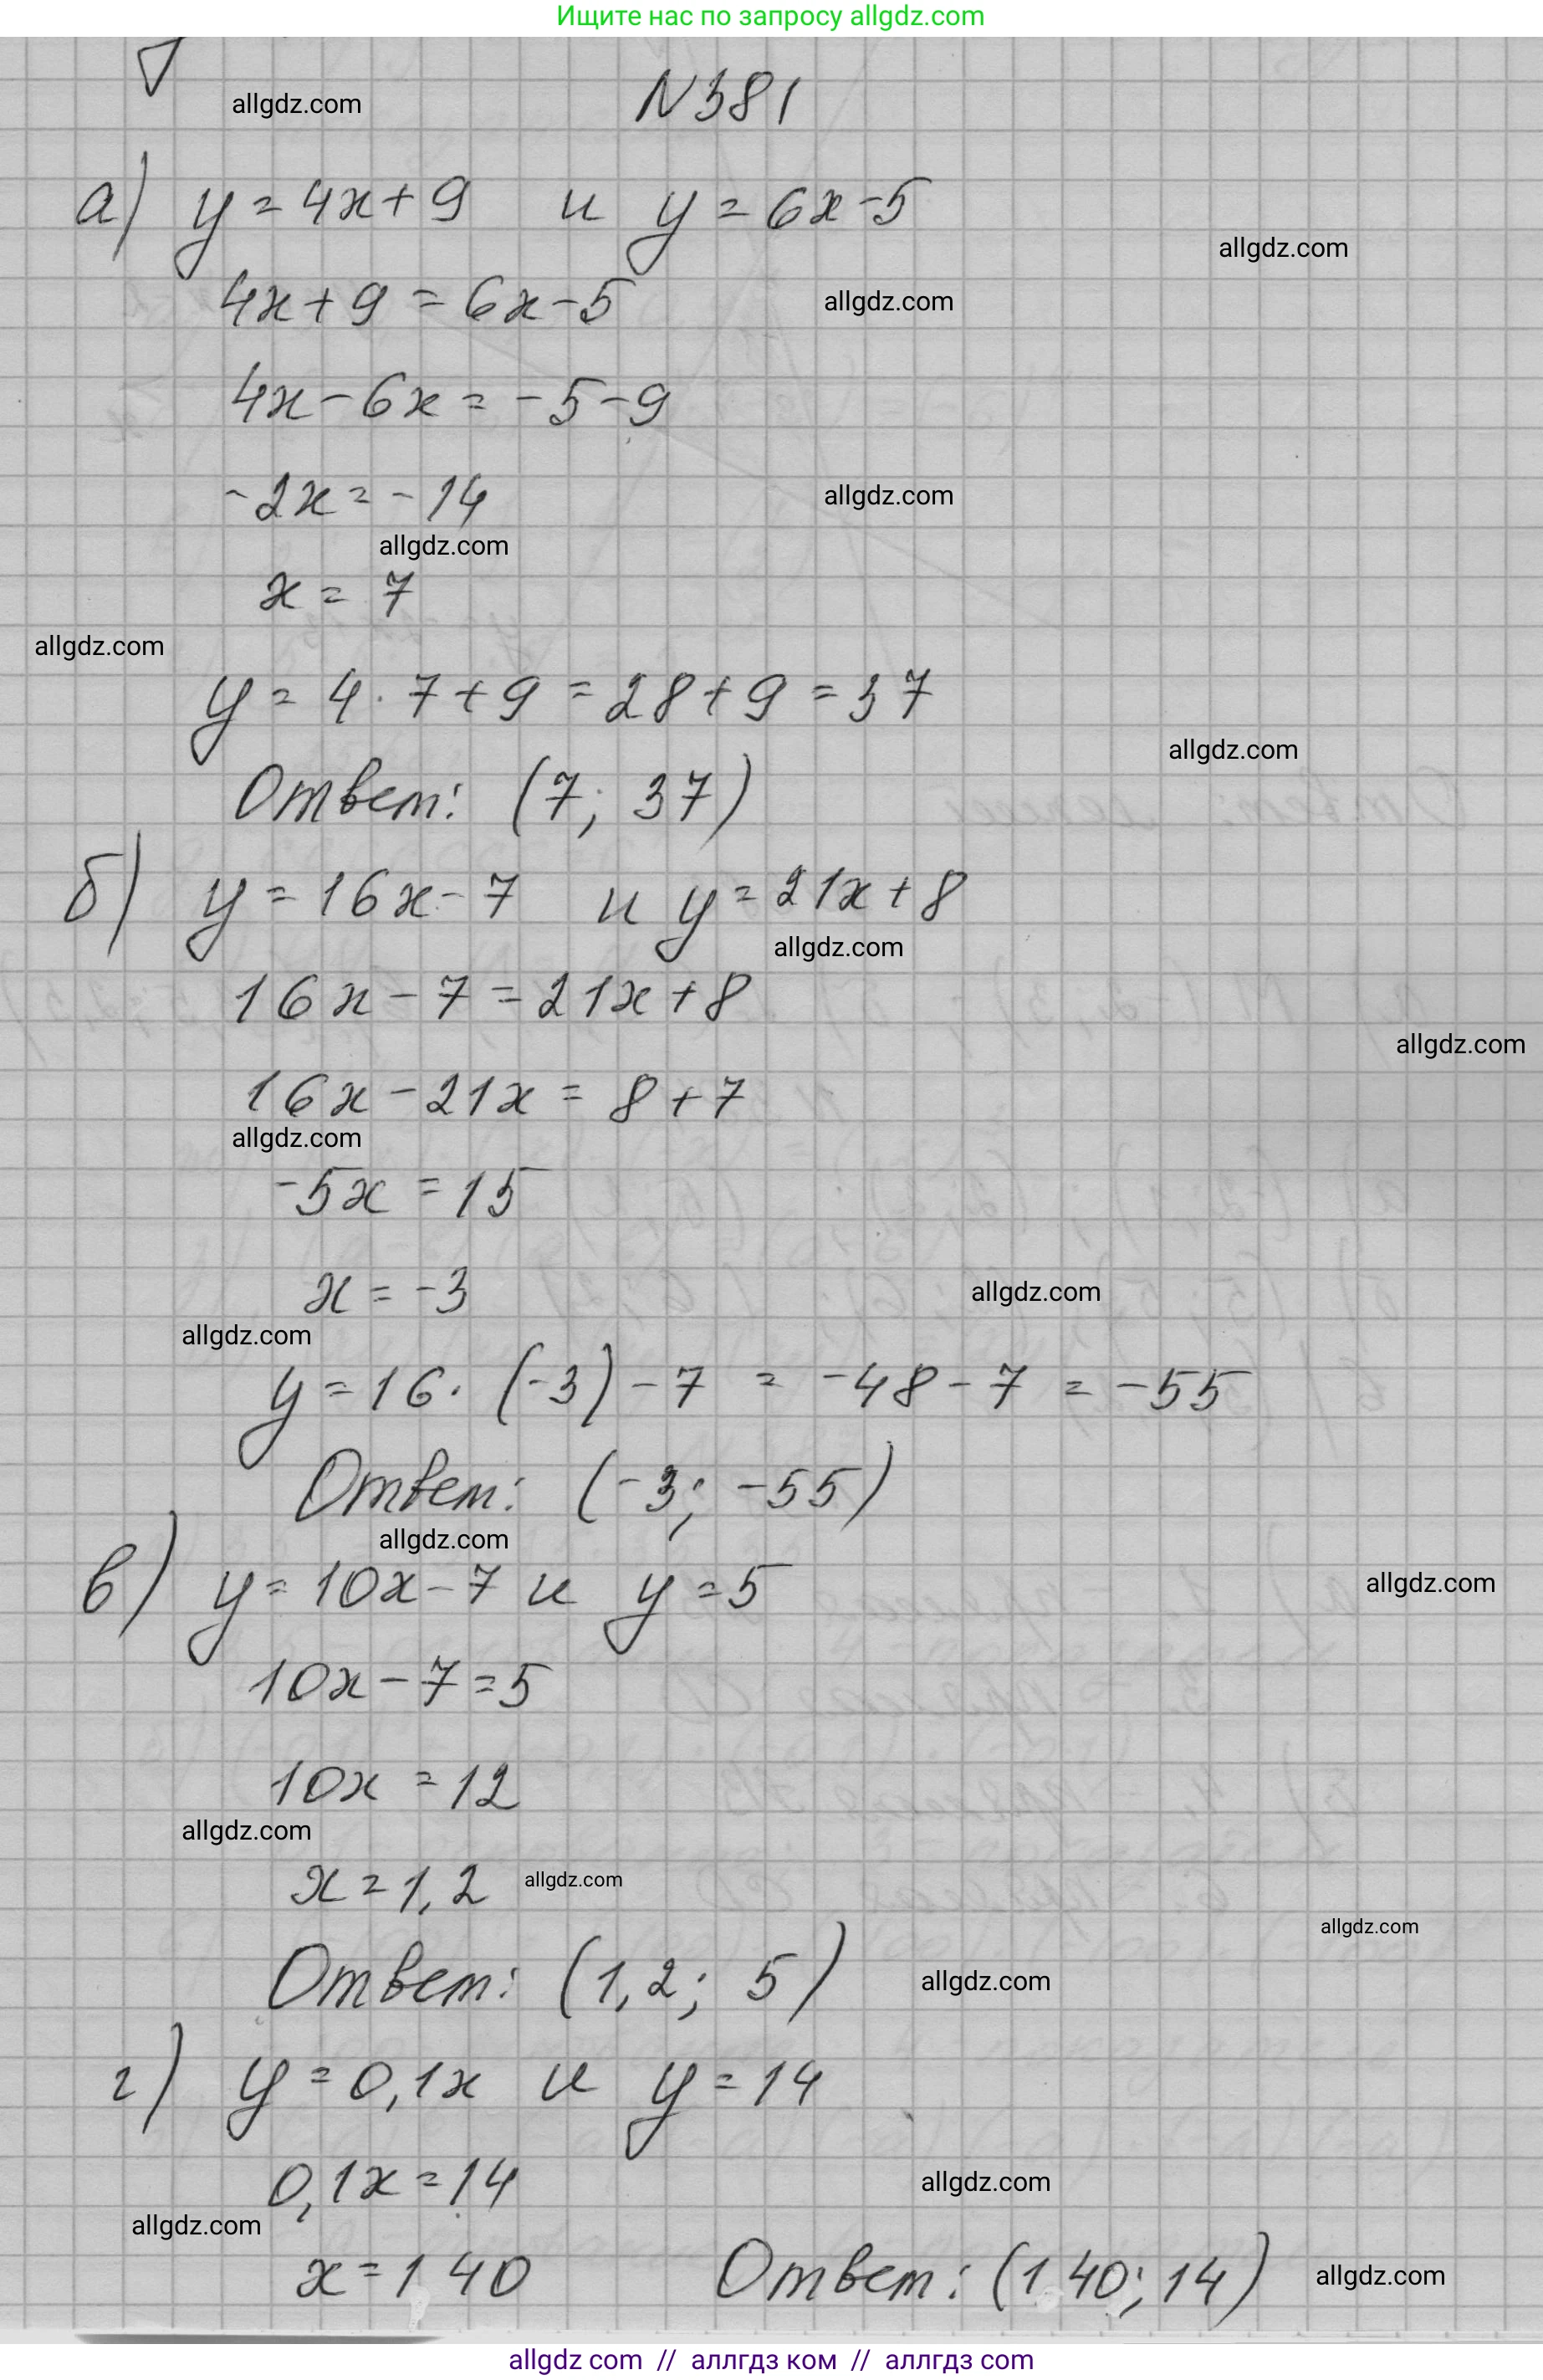 Ищите нас по запросу allgdz.com
allgdz.com
N381
а) y = 4x + 9 и y = 6x - 5
allgdz.com
4x + 9 = 6x - 5
allgdz.com
4x - 6x = - 5 - 9
-2x = - 14
allgdz.com
allgdz.com
x = 7
allgdz.com
y = 4 · 7 + 9 = 28 + 9 = 37
allgdz.com
Ответ: (7; 37)
б) y = 16x - 7 и y = 21x + 8
allgdz.com
16x - 7 = 21x + 8
allgdz.com
16x - 21x = 8 + 7
allgdz.com
-5x = 15
x = -3
allgdz.com
allgdz.com
y = 16 · (-3) - 7 = -48 - 7 = -55
Ответ: (-3; -55)
allgdz.com
в) y = 10x - 7 и y = 5
allgdz.com
10x - 7 = 5
10x = 12
allgdz.com
x = 1,2
allgdz.com
allgdz.com
Ответ: (1,2; 5)
allgdz.com
г) y = 0,1x и y = 14
0,1x = 14
allgdz.com
allgdz.com
x = 140 Ответ: (140; 14)
allgdz.com
allgdz com // аллгдз ком // аллгдз com